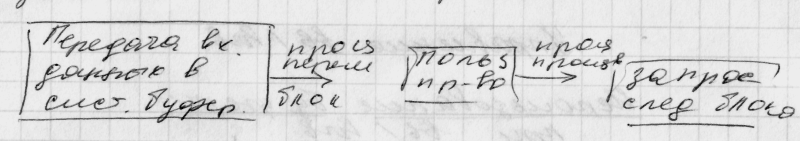 Передача вх.
данных в
сист. буфер.
проц
перем
блок
польз
пр-во
проц
произв
запрос
след блока